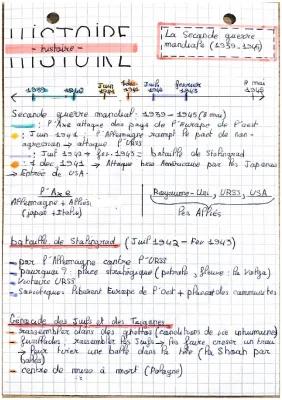 HISTOIRE
- histoire -
La Seconde guerre
mondiale (1939-1945)
1939 1940 Juin 1941 7 déc 1941 Juil 1942 février 1943 8 mai 1945
Seconde guerre mondial : 1939-1945 (8 mai)
: l'Axe attaque des pays de l'Europe de l'ouest
: Juin 1941 : l'Allemagne rompt le pact de non-
agression → attaque l'URSS
: Juil 1942 → fev. 1943 = bataille de Stalingrad
: 7 déc 1941 → Attaque base Américaine par les Japonais
→ Entrée de USA.
l'Axe
Allemagne + Alliés
(japon + Italie)
Royaume-Uni, URSS, USA
les Alliés
bataille de Stalingrad (Juil 1942 - Fev 1943)
- par l'Allemagne contre l'URSS
- pourquoi ? : place stratégique (pétrole, fleuve : la Volga)
- victoire URSS
- Soviétiques : libèrent Europe de l'Est + plus communistes
Génocide des Juifs et des Tziganes
- rassembler dans des ghettos (conditions de vie inhumaine)
- fusillades : rassembler les Juifs → les faire creuser un trou
→ leur tirer une balle dans la tête (la Shoah par
balles)
- centre de mise à mort (Pologne)